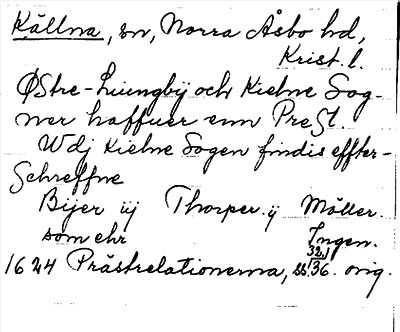 Källna, sn, Norra Åsbo hd,
Krist. l.
ØStre-Liungbÿ och Kielne Sog-
ner haffuer enn PreSt.
Wdj Kielne Sogen findis effter-
Schreffne
Bÿer iij Thorper ij Möller.
som ehr Ingen.
32,
1624 Prästrelationerna, ss. 136. orig.